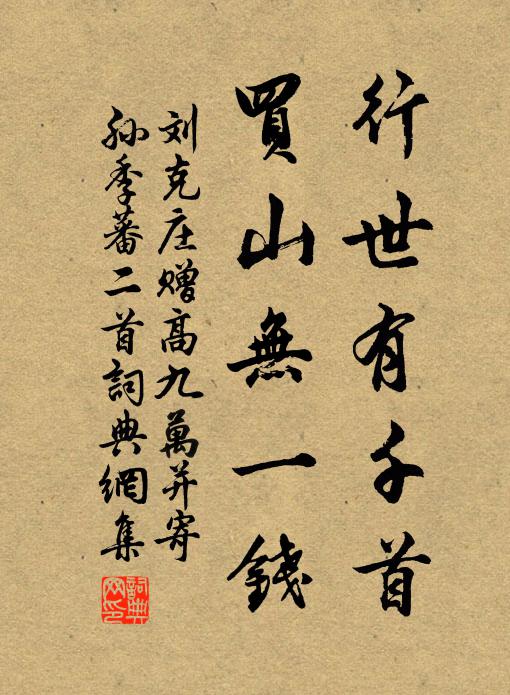 行世有千首
買山無一錢
刘克庄赠高九萬并寄
孙季蕃二首詞典網集
詞典網印